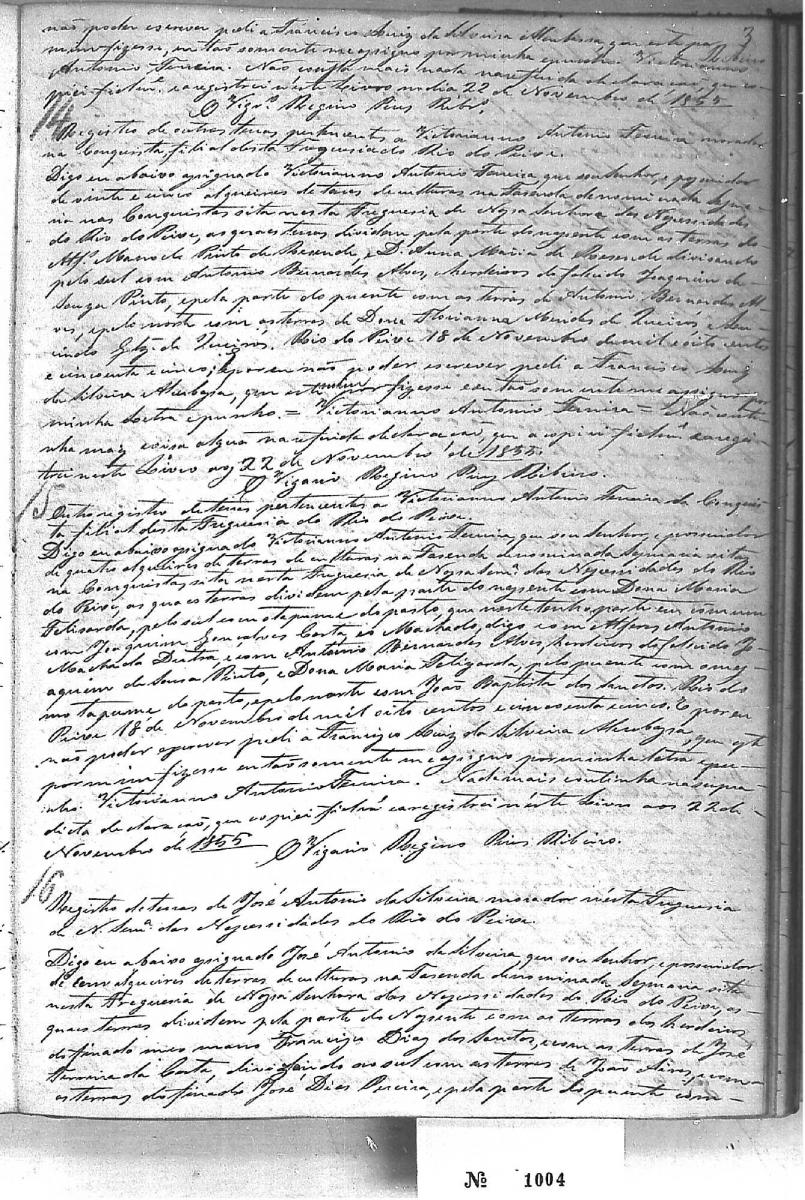 3
não poder escrever pedi a Francisco Luiz da Silveira que este por
mim fizesse, e tão somente me assigno por minha e punho. Victorianno
Antonio Ferreira. Não mais nada na referida declaração, que co-
piei e registrei neste Livro no dia 22 de Novembro de 1855
O Vigrº Regino Pires Ribrº
14
Registro de outras terras pertencentes a Victorianno Antonio Ferreira morador
na Conquista, filial desta Freguesia do Rio do Peixe.
Digo eu abaixo assignado Victorianno Antonio Ferreira que sou Senhor, e possuidor
de vinte e cinco alqueires de terras de culturas na Fasenda denominada
na Conquista sita nesta Freguesia de Nossa Senhora das Necessidades
do Rio do Peixe, as quaes terras dividem pela parte do nascente com as terras do
Alfs Manoel Pinto de Resende, e D. Anna Maria de Resende dividindo
pelo sul com Antonio Bernardes Alves, herdeiros do falecido Joaquim de
Souza Pinto, e pela parte do puente com as terras de Antonio Bernardes Al-
ves, e pelo norte com as terras de Dona Florianna Mendes de Queirós, e
de Queiros. Rio do Peixe 18 de Novembro de mil e oito centos
e cincoenta e cinco, e por eu não poder escrever pedi a Francisco Luiz
da Silveira que este por mim fizesse e tão somente me assigno por
minha Letra e punho. = Victorianno Antonio Ferreira = Não conti-
nha mais coisa algũa na referida declaração, que a copiei e regis-
trei neste Livro aos 22 de Novembro de 1855.
O Vigario Regino Pires Ribeiro.
15
Outro registro de terras pertencentes a Victorianno Antonio Ferreira da Conquis-
ta filial desta Freguesia do Rio do Peixe.
Digo eu abaixo assignado Victorianno Antonio Ferreira, que sou Senhor, e possuidor
de quatro alqueires de terras de culturas na Fasenda denominada Sesmaria sita
na Conquista, sita nesta Freguesia de Nossa Senrª das Necessidades do Rio
do Peixe, as quaes terras dividem pela parte do nascente com Dona Maria
Felisarda, pelo sul com o tapume do pasto, que neste tenho parte em commum
com Joaquim Gonçalves Costa, e Machado, digo com Alferes Antonio
Machado Dutra, e com Antonio Bernardes Alves, herdeiros do falecido Jo-
aquim de Sousa Pinto, e Dona Maria Feligarda, pelo puente com o mes-
mo tapume do pasto, e pelo norte com João Baptista dos Sanctos. Rio do
Peixe 18 de Novembro de mil oito centos e cincoenta e cinco. E por eu
não poder escrever pedi a Francisco Luiz da Silveira que este
por mim fizesse e tão somente me assigno por minha letra e pu-
nho. Victorianno Antonio Ferreira. Nada mais continha na supra-
dicta declaração, que copiei e a registrei neste Livro aos 22 de
Novembro de 1855 O Vigario Regino Pires Ribeiro.
16
Registro de terras de José Antonio da Silveira morador nesta Freguesia
de N. Senrª das Necessidades do Rio do Peixe.
Digo eu abaixo assignado José Antonio da Silveira, que sou Senhor, e possuidor
de cem alqueires de terras de culturas na Fasenda denominada Sesmaria sita
nesta Freguesia de Nossa Senhora das Necessidades do Rio do Peixe, as
quaes terras dividem pela parte do Nascente com as terras dos herdeiros
do finado meu mano Francisco Dias dos Santos, e com as terras de José
Ferreira da Costa, dividindo ao sul com as terras de João Aires, e com
as terras do finado José Dias Pereira, e pela parte do puente com-
Nº 1004